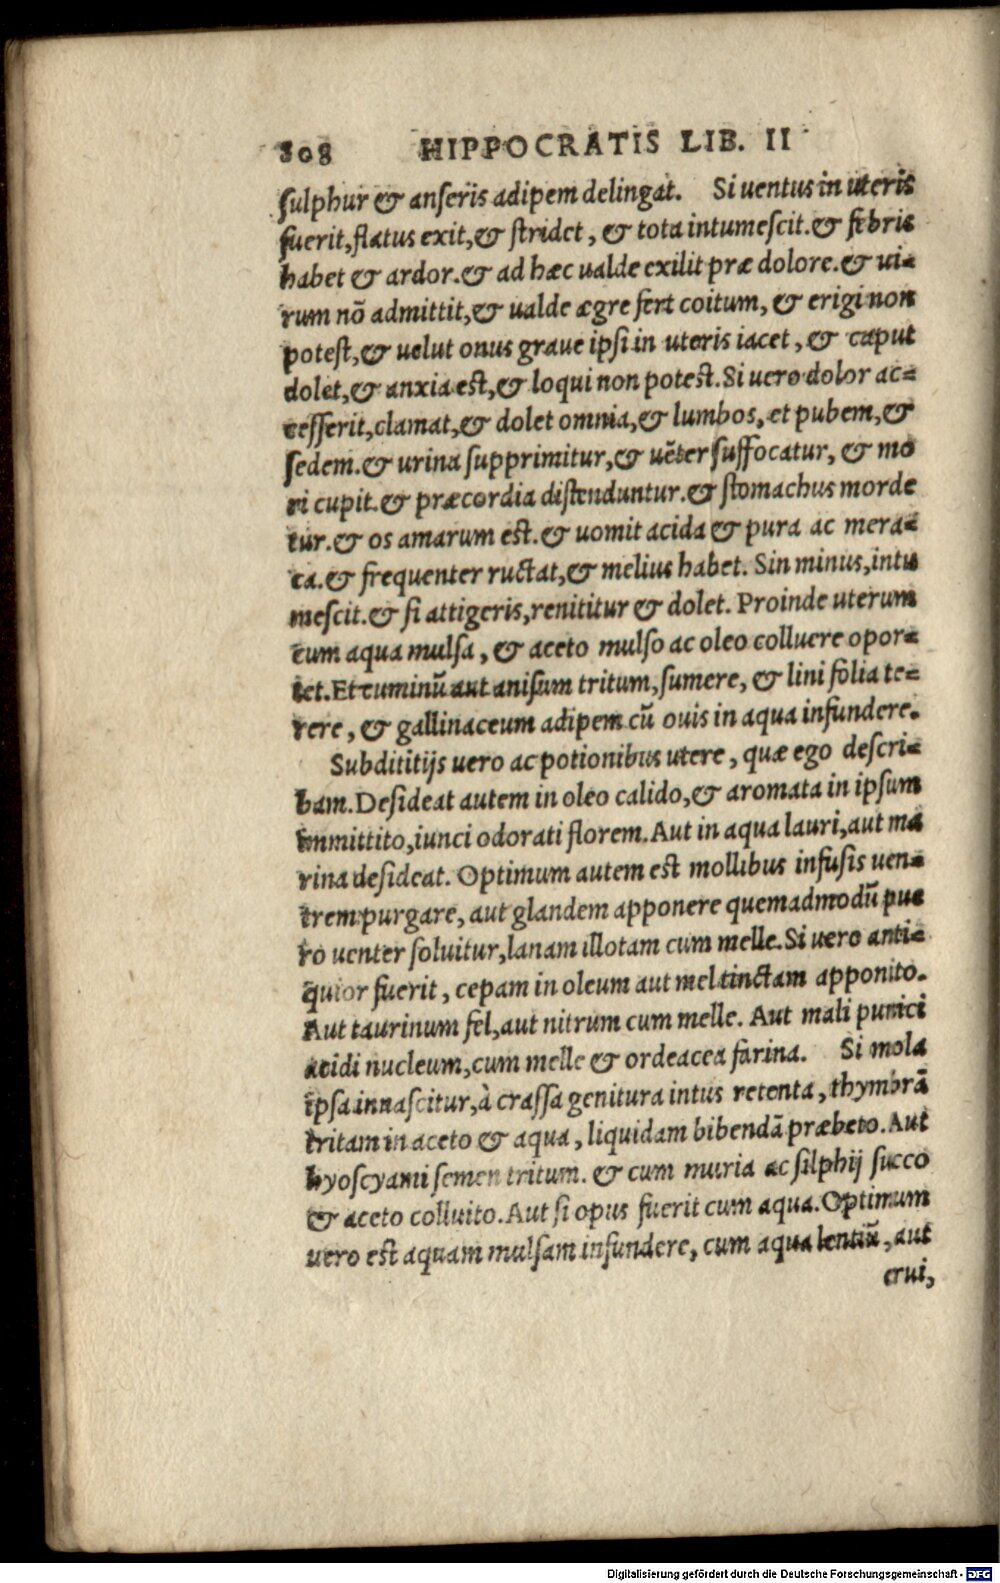 308 HIPPOCRATIS LIB. II
sulphur & anseris adipem delingat. Si uentus in uteris
fuerit, flatus exit, & stridet, & tota intumescit. & febris
habet & ardor. & ad hæc ualde exilit præ dolore. & ui-
rum nõ admittit, & ualde ægre fert coitum, & erigi non
potest, & uelut onus graue ipsi in uteris iacet, & caput
dolet, & anxia est, & loqui non potest. Si uero dolor ac-
cesserit, clamat, & dolet omnia, & lumbos, et pubem, &
sedem. & urina supprimitur, & uẽter suffocatur, & mo
ri cupit. & præcordia distenduntur. & stomachus morde
tur. & os amarum est. & uomit acida & pura ac mera-
ca. & frequenter ructat, & melius habet. Sin minus, intu
mescit. & si attigeris, renititur & dolet. Proinde uterum
cum aqua mulsa, & aceto mulso ac oleo colluere opor-
tet. Et cuminũ aut anisum tritum, sumere, & lini folia te-
rere, & gallinaceum adipem cũ ouis in aqua infundere.
Subdititijs uero ac potionibus utere, quæ ego descri-
bam. Desideat autem in oleo calido, & aromata in ipsum
immittito, iunci odorati florem. Aut in aqua lauri, aut ma
rina desideat. Optimum autem est mollibus infusis uen-
trem purgare, aut glandem apponere quemadmodũ pue
ro uenter soluitur, lanam illotam cum melle. Si uero anti-
quior fuerit, cepam in oleum aut mel tinctam apponito.
Aut taurinum fel, aut nitrum cum melle. Aut mali punici
acidi nucleum, cum melle & ordeacea farina. Si mola
ipsa innascitur, à crassa genitura intus retenta, thymbrã
tritam in aceto & aqua, liquidam bibendã præbeto. Aut
hyoscyami semen tritum. & cum muria ac silphij succo
& aceto colluito. Aut si opus fuerit cum aqua. Optimum
uero est aquam mulsam infundere, cum aqua lentiũ, aut
erui,
Digitalisierung gefördert durch die Deutsche Forschungsgemeinschaft - DFG